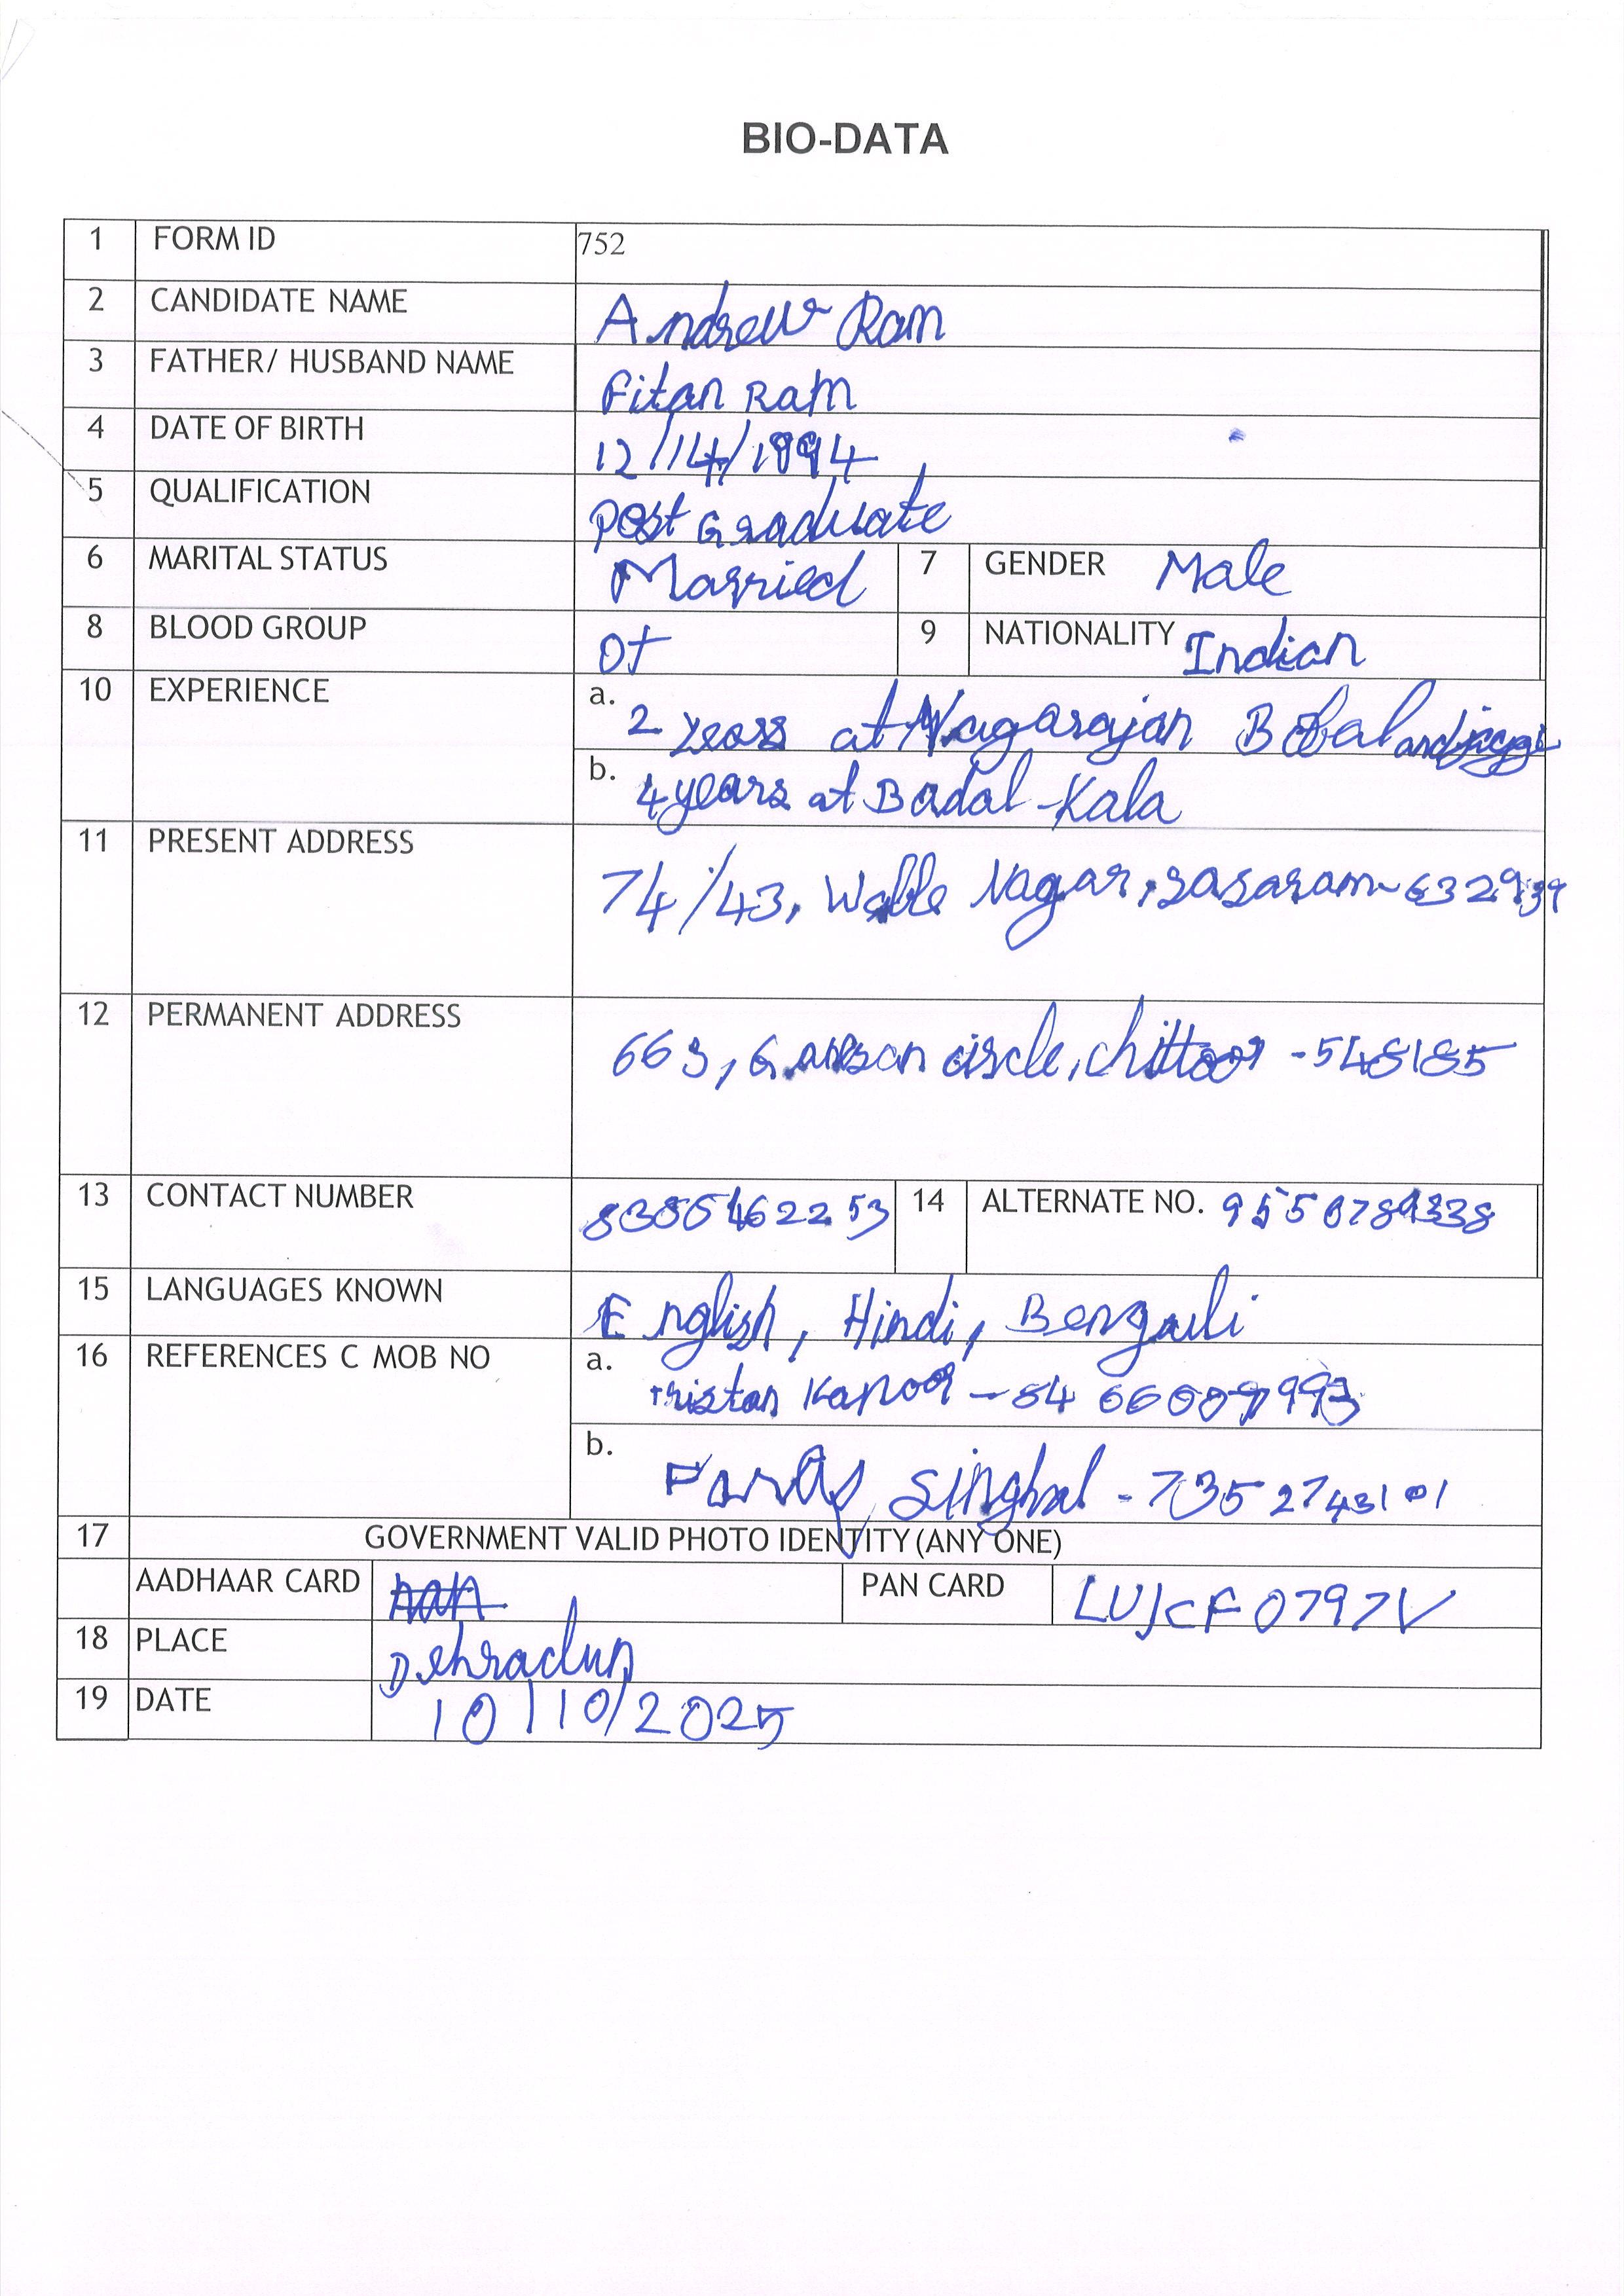 BIO-DATA
1 FORM ID 752
2 CANDIDATE NAME Andrew Ram
3 FATHER/ HUSBAND NAME Fitan Ram
4 DATE OF BIRTH 12/14/1994
5 QUALIFICATION Post Graduate
6 MARITAL STATUS Married 7 GENDER Male
8 BLOOD GROUP O+ 9 NATIONALITY Indian
10 EXPERIENCE a. 2 years at Nagarajan
b. 4 years at Badal-Kala
11 PRESENT ADDRESS 74/43, Nagar, Sasaram-632939
12 PERMANENT ADDRESS 663, circle, Chittoor -548185
13 CONTACT NUMBER 14 ALTERNATE NO.
15 LANGUAGES KNOWN English, Hindi, Bengali
16 REFERENCES C MOB NO a. Tristan Kapoor -
b. Singhal - 7352743101
17 GOVERNMENT VALID PHOTO IDENTITY (ANY ONE)
AADHAAR CARD PAN CARD LUJCF0797V
18 PLACE Dehradun
19 DATE 10/10/2025